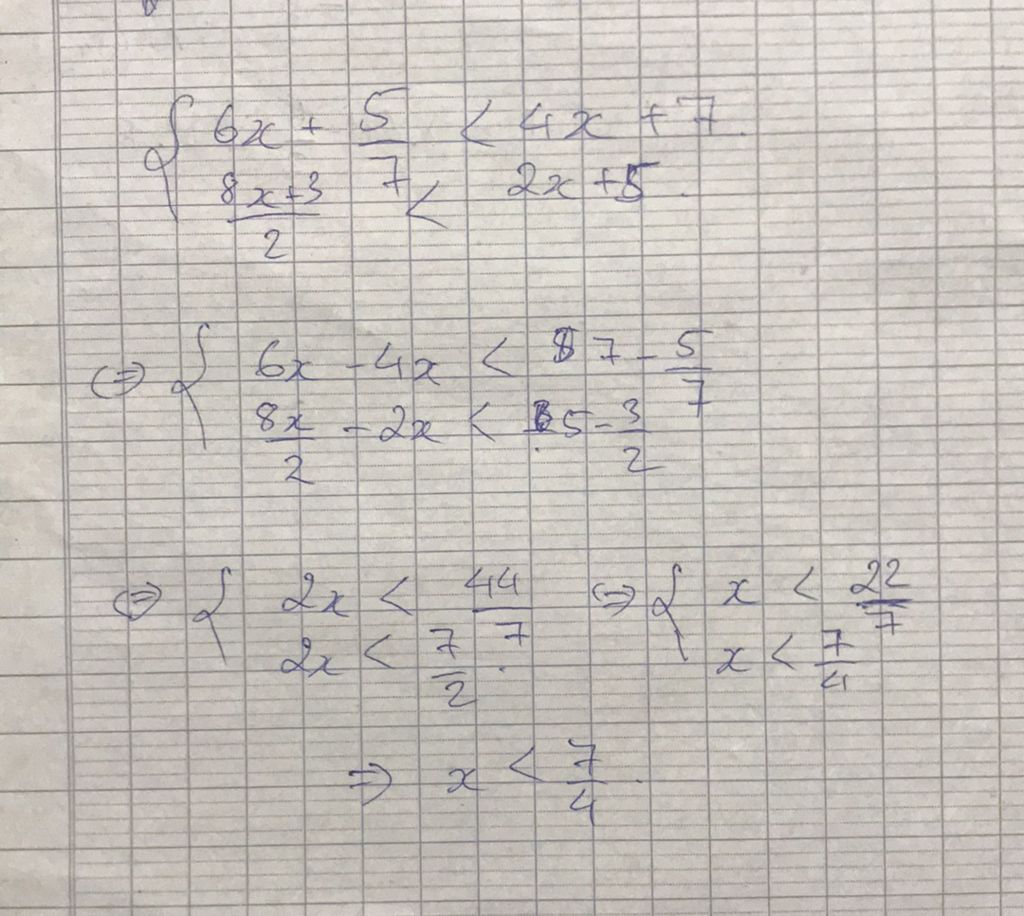 { 6x + 5/7 < 4x + 7
(8x+3)/2 < 2x + 5
⇔ { 6x - 4x < 7 - 5/7
8x/2 - 2x < 5 - 3/2
⇔ { 2x < 44/7 ⇔ { x < 22/7
2x < 7/2 . x < 7/4
⇒ x < 7/4 .